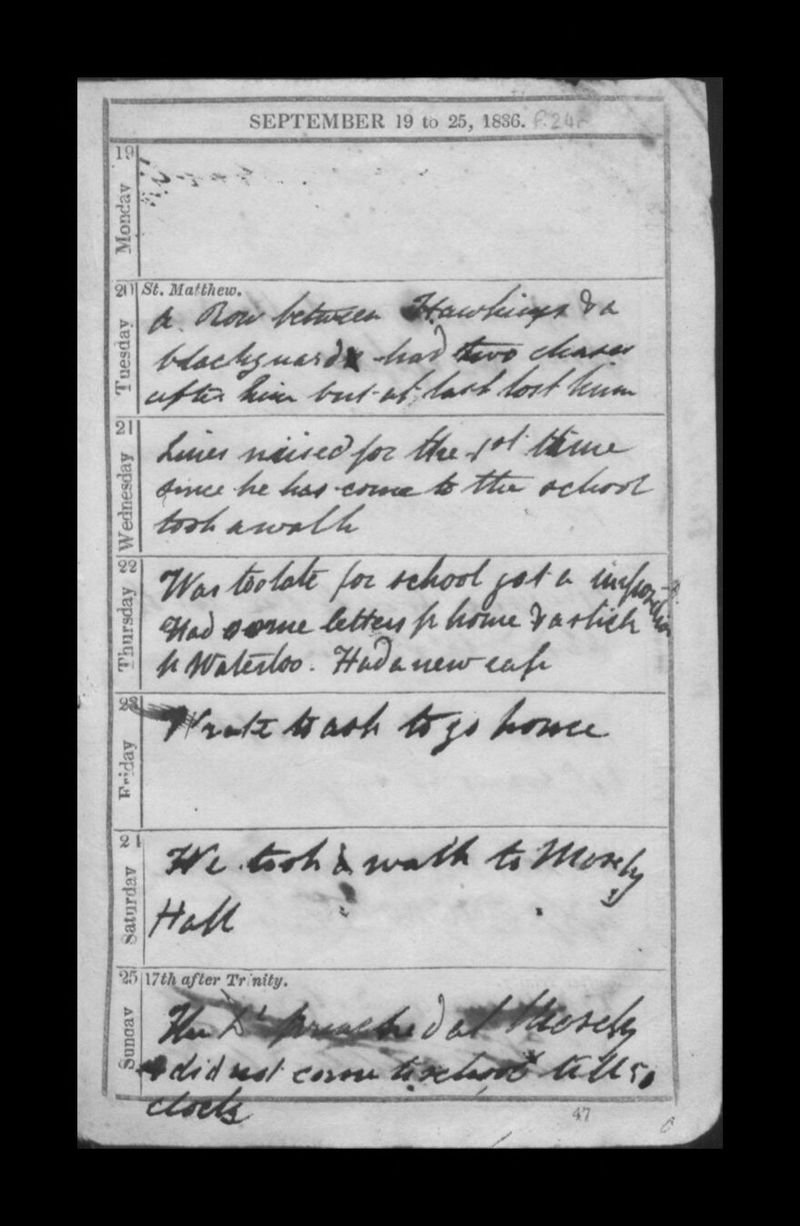 SEPTEMBER 19 to 25, 1836. f.24r
19 Monday
20 Tuesday
St. Matthew.
A Row between Hawkings & a
blackguard had two chases
after him but at last lost him
21 Wednesday
Lines missed for the 1st time
since he has come to the school
took a walk
22 Thursday
Was too late for school got a imposition
Had some letters fr home & a stick
fr Waterloo. Had a new cap
23 Friday
Wrote to ask to go home
24 Saturday
We took a walk to Mosely
Hall
25 Sunday
17th after Trinity.
The Dr preached at Mosely
& did not come to school till 5 o
clock
47